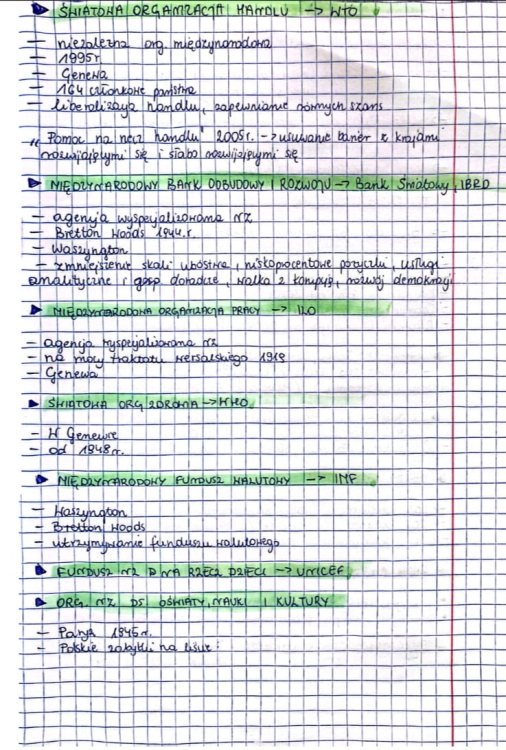 ŚWIATOWA ORGANIZACJA HANDLU -> WTO
- niezależna org. międzynarodowa
- 1995r.
- Genewa
- 164 członkowie państwa
- liberalizacja handlu, zapewnianie równych szans
"Pomoc na rzecz handlu" 2005r. -> usuwanie barier z krajami
rozwijającymi się i słabo rozwijającymi się
MIĘDZYNARODOWY BANK ODBUDOWY I ROZWOJU -> Bank Światowy, IBRD
- agencja wyspecjalizowana NZ
- Bretton Woods 1944.r.
- Waszyngton
- zmniejszenie skali ubóstwa, niskoprocentowe pożyczki, usługi
analityczne i gosp. doradcze, walka z korupcją, rozwój demokracji
MIĘDZYNARODOWA ORGANIZACJA PRACY -> ILO
- agencja wyspecjalizowana NZ
- na mocy traktatu wersalskiego 1919
- Genewa
ŚWIATOWA ORG ZDROWIA -> WHO
- W Genewie
- od 1948r.
MIĘDZYNARODOWY FUNDUSZ WALUTOWY -> IMF
- Waszyngton
- Bretton Woods
- utrzymywanie funduszu walutowego
FUNDUSZ NZ NA RZECZ DZIECI -> UNICEF
ORG. NZ DS. OŚWIATY, NAUKI I KULTURY
- Paryż 1945r.
- Polskie zabytki na liście: